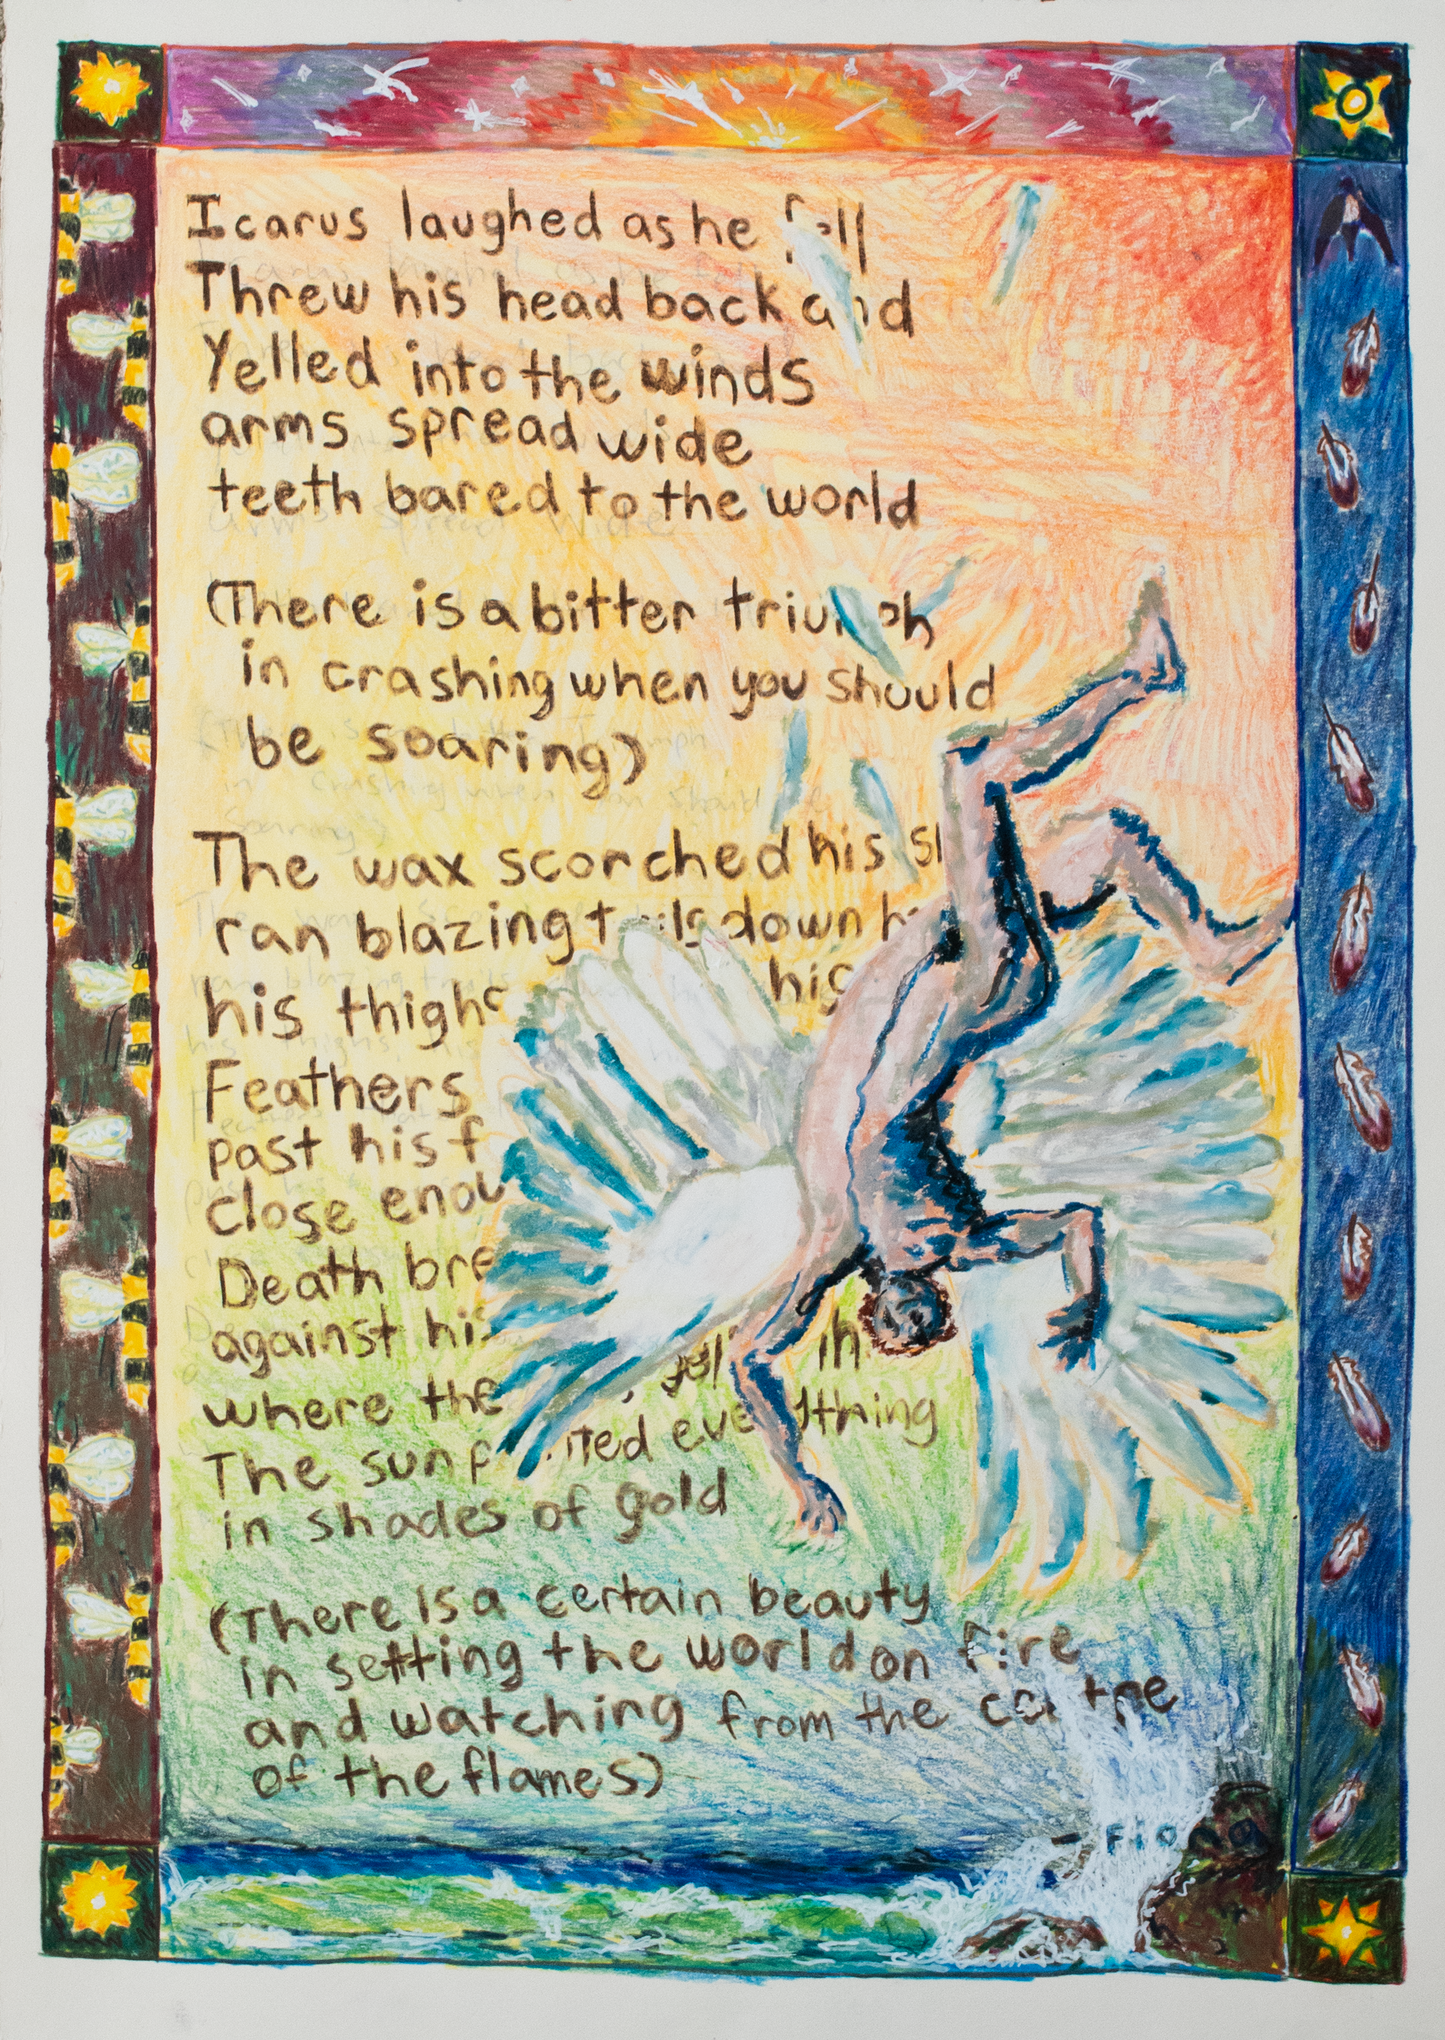 Icarus laughed as he fell
Threw his head back and
Yelled into the winds
arms spread wide
teeth bared to the world
(There is a bitter triumph
in crashing when you should
be soaring)
The wax scorched his
ran blazing trails down
his thighs his
Feathers
past his
close
Death
against his
where the
The sun painted everything
in shades of gold
(There is a certain beauty
in setting the world on fire
and watching from the centre
of the flames)
- Fiona